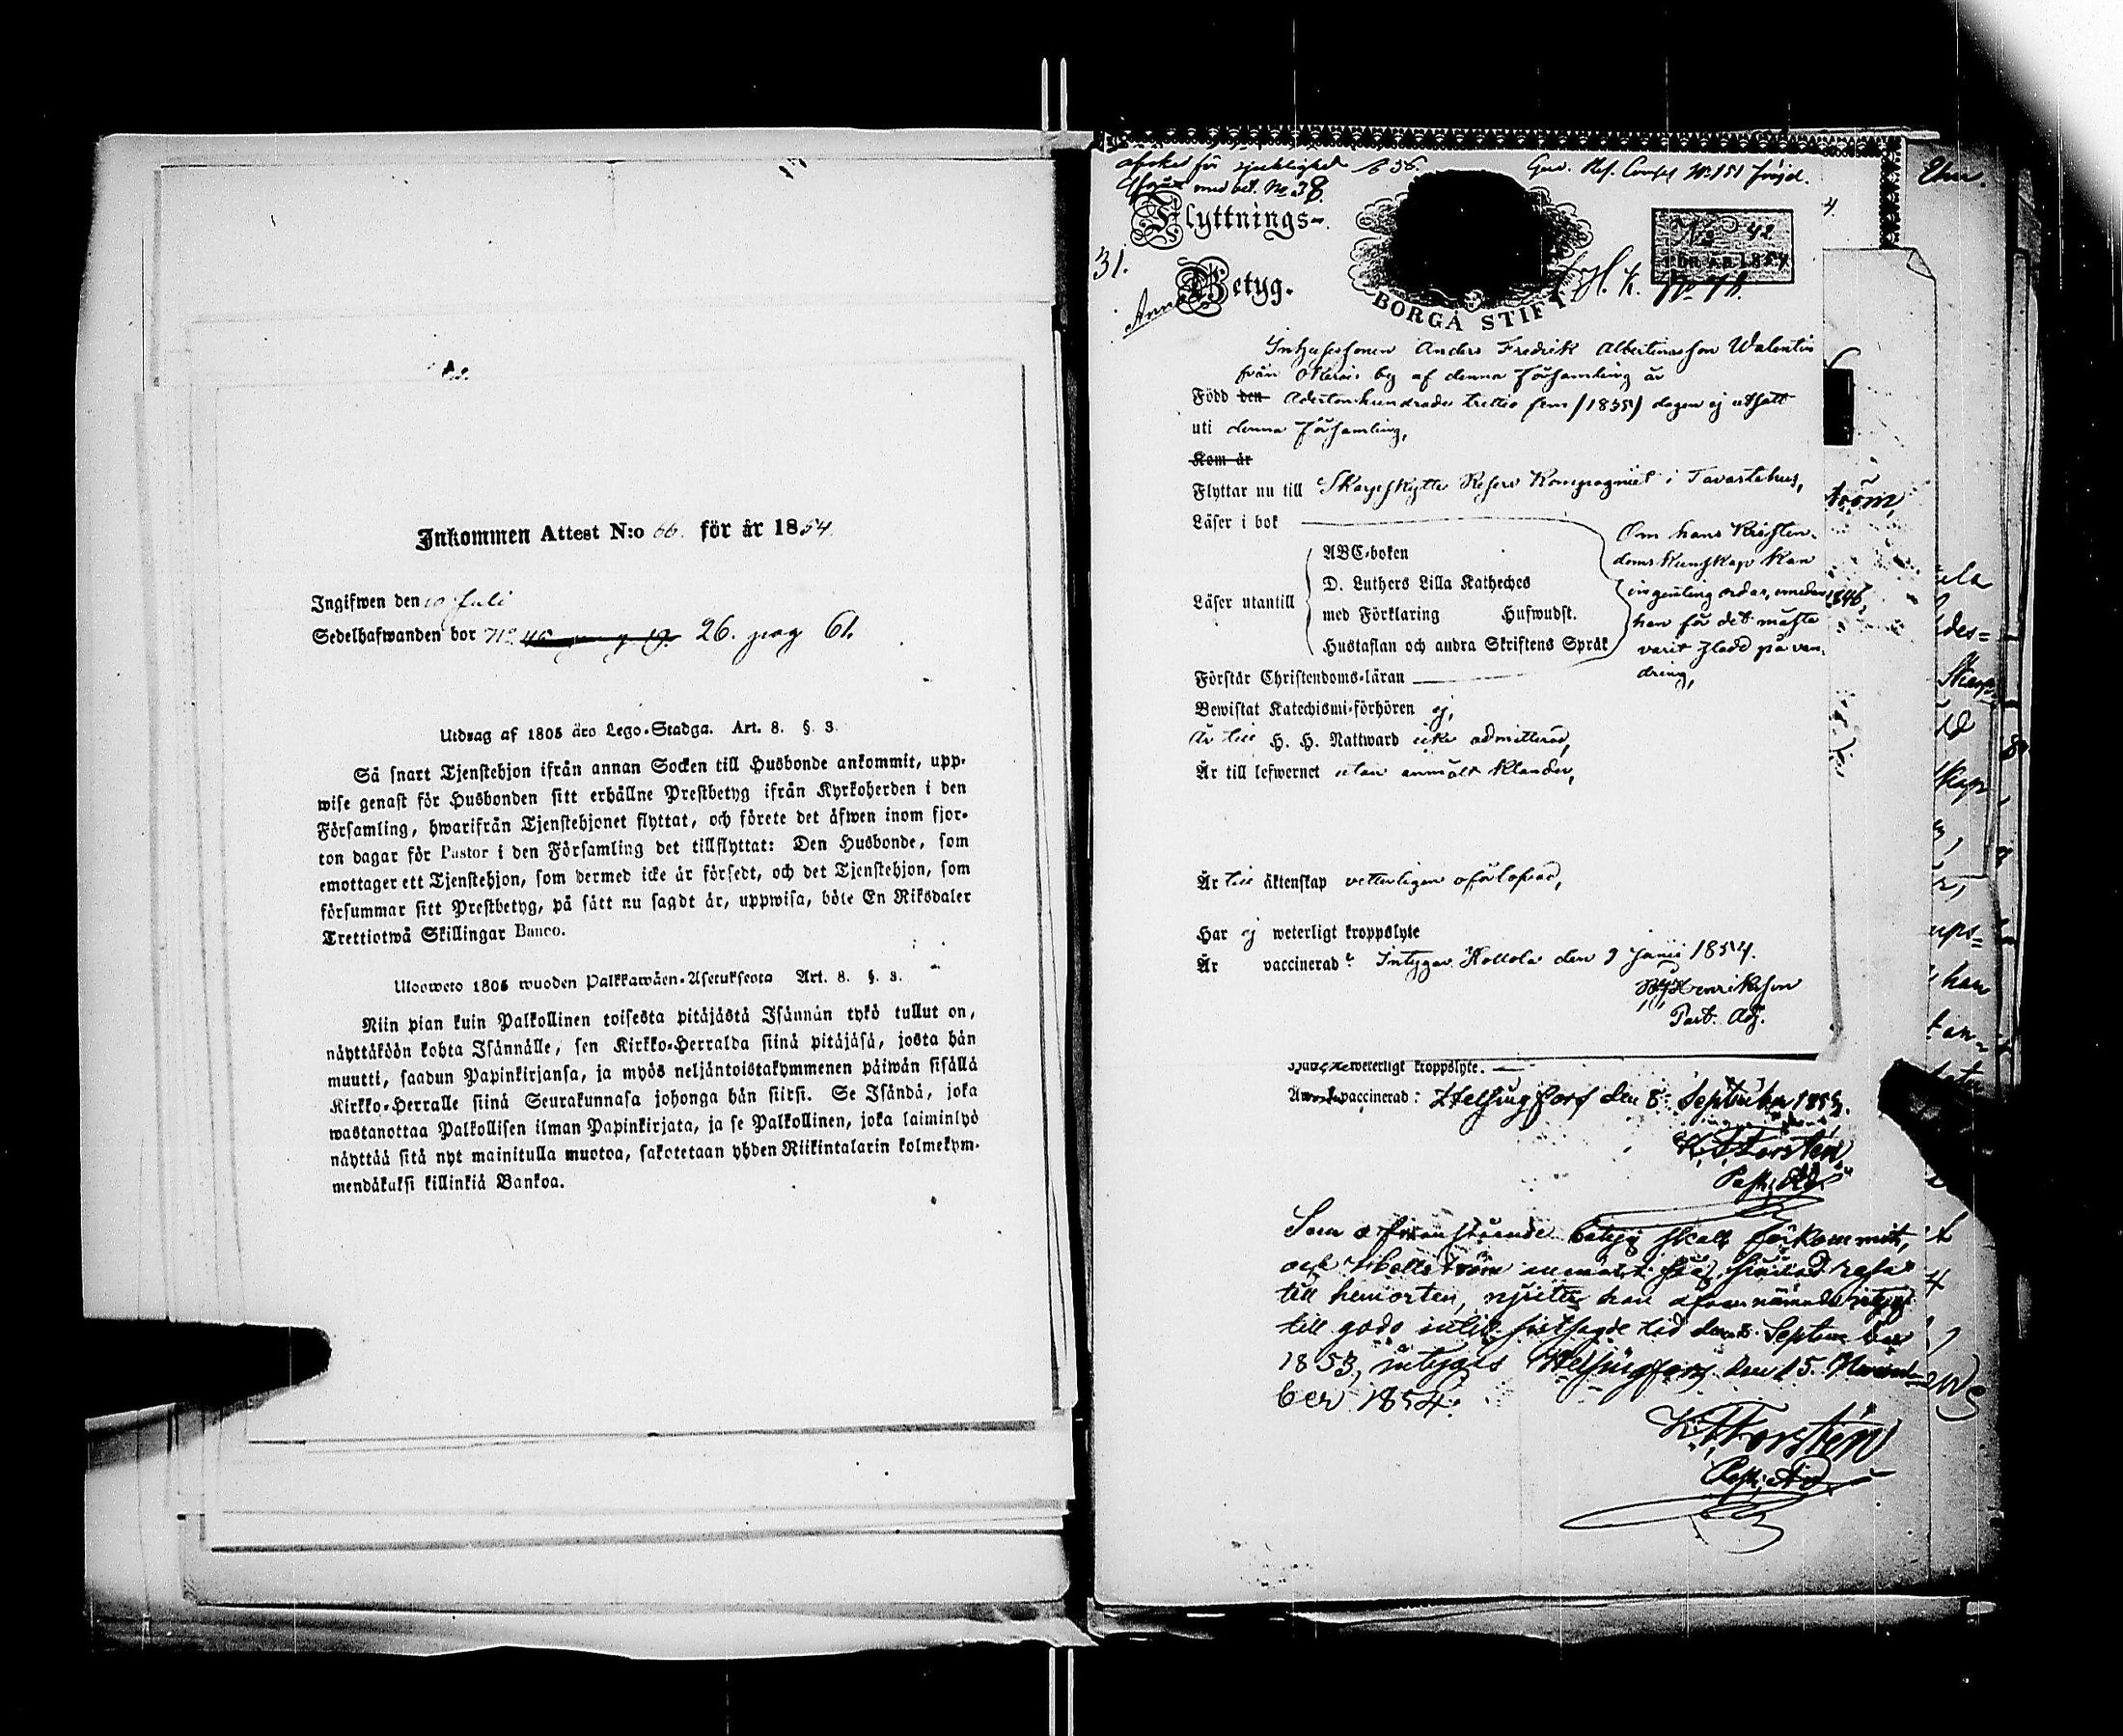 Inkommen Attest N:o 66. för år 1854.
Ingifwen den 10 Juli
Sedelhafwanden bor No 26. pag 61.
Utdrag af 1805 års Lego-Stadga. Art. 8. §. 3.
Så snart Tjenstehjon ifrån annan Socken till Husbonde ankommit, upp-
wise genast för Husbonden sitt erhållne Prestbetyg ifrån Kyrkoherden i den
Församling, hwarifrån Tjenstehjonet flyttat, och förete det äfwen inom fjor-
ton dagar för Pastor i den Församling det tillflyttat: Den Husbonde, som
emottager ett Tjenstehjon, som dermed icke är försedt, och det Tjenstehjon, som
försummar sitt Prestbetyg, på sätt nu sagdt är, uppwisa, böte En Riksdaler
Trettiotwå Skillingar Banco.
Ulosweto 1805 wuoden Palkkawäen-Asetuksesta Art. 8. §. 3.
Niin pian kuin Palkollinen toisesta pitäjästä Isännän tykö tullut on,
näyttäköön kohta Isännälle, sen Kirkko-Herralda siinä pitäjäsä, josta hän
muutti, saadun Papinkirjansa, ja myös neljäntoistakymmenen päiwän sisällä
Kirkko-Herralle siinä Seurakunnasa johonga hän siirsi. Se Isändä, joka
wastanottaa Palkollisen ilman Papinkirjata, ja se Palkollinen, joka laiminlyö
näyttää sitä nyt mainitulla muotoa, sakotetaan yhden Riikintalarin kolmekym-
mendäkaksi killinkiä Bankoa.
afsked för sjuklighet 56.
med bet. No 38.
Flyttnings-
Betyg.
31.
BORGÅ STIFT
No 42
FÖR ÅR 1854
H. k.
Inhysessonen Anders Fredrik Albertinasson Walentin
från Okerois by af denna församling är
Född den Adertonhundrade trettio fem (1835) dagen ej utsatt
uti denna församling,
Kom år
Flyttar nu till Skarpskytte Reserv Kompagniet i Tavastehus,
Läser i bok
Läser utantill
ABC-boken
D. Luthers Lilla Katheches
med Förklaring Husfwudst.
Hustaflan och andra Skriftens Språk
Om hans Kristen-
doms Kunskap kan
ingenting ordas, emedan
han för det mästa
varit stadd på van-
dring,
Förstår Christendoms-läran
Bewistat Katechismi-förhören ej,
Är till H. H. Nattward icke admitterad,
Är till lefwernet utan anmält klander,
Är till äktenskap vetterligen oförlofwad,
Har ej weterligt kroppslyte
Är vaccinerad. Intygar Hollola den 9 Junii 1854.
Henrikson
Past. Adj.
weterligt kroppslyte.
vaccinerad: Helsingfors den 8 September 1853.
K. F. Forstén
Past. Adj.
Som ofvanstående betyg skall förkommit,
till hemorten, njuter han
till godo den 8. September
1853, intygas Helsingfors den 15. Novem-
ber 1854.
K. F. Forstén
Past. Adj.